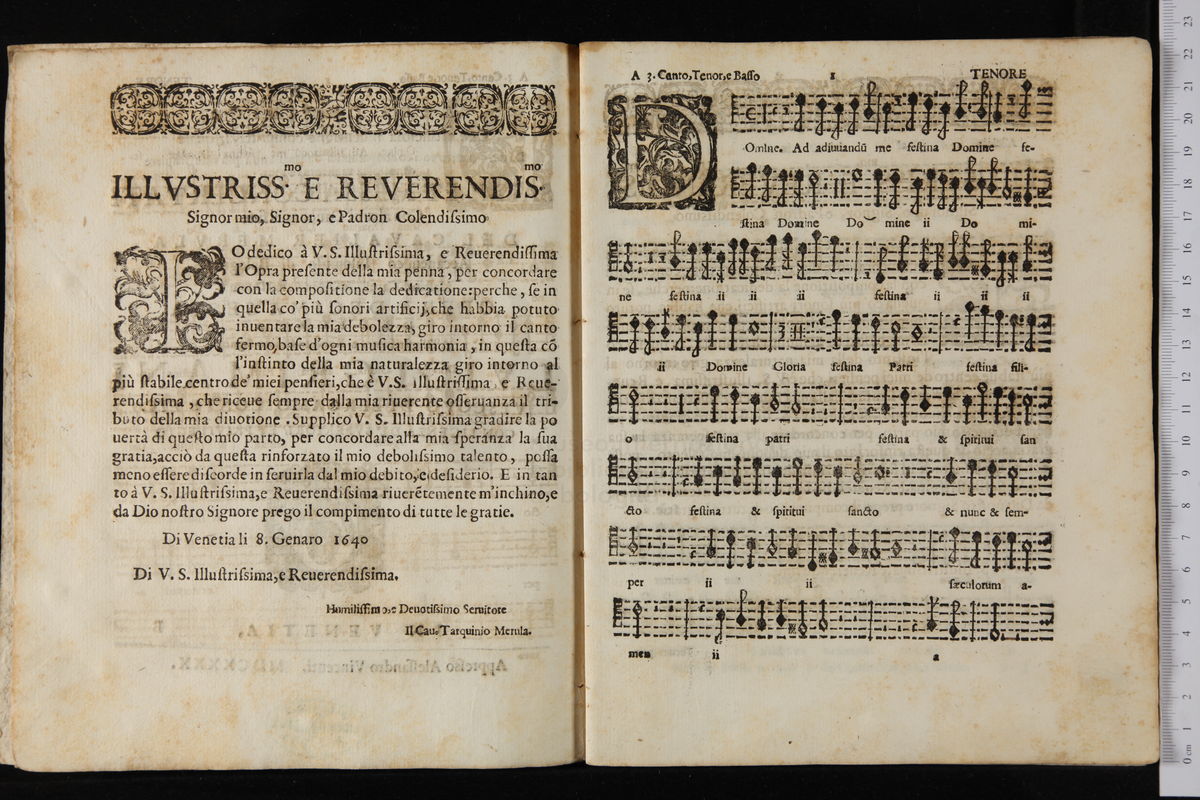 ILLVSTRISS.mo E REVERENDIS.mo
Signor mio, Signor, e Padron Colendiſsimo
IO dedico à V. S. Illuſtriſsima, e Reuerendiſſima
l'Opra preſente della mia penna, per concordare
con la compoſitione la dedicatione: perche, ſe in
quella co' più ſonori artificij, che habbia potuto
inuentare la mia debolezza, giro intorno il canto
fermo, baſe d'ogni muſica harmonia, in queſta cō
l'inſtinto della mia naturalezza giro intorno al
più ſtabile centro de' miei penſieri, che è V.S. Illuſtriſſima, e Reue-
rendiſsima, che riceue ſempre dalla mia riuerente oſſeruanza il tri-
buto della mia diuotione. Supplico V. S. Illuſtriſsima gradire la po
uertà di queſto mio parto, per concordare alla mia ſperanza la ſua
gratia, acciò da queſta rinforzato il mio deboliſsimo talento, poſſa
meno eſſere diſcorde in ſeruirla dal mio debito, e deſiderio. E in tan
to à V. S. Illuſtriſsima, e Reuerendiſsima riuerētemente m'inchino, e
da Dio noſtro Signore prego il compimento di tutte le gratie.
Di Venetia li 8. Genaro 1640
Di V. S. Illuſtriſsima, e Reuerendiſsima.
Humiliſſimo, e Deuotiſsimo Seruitore
Il Cau. Tarquinio Merula.
A 3. Canto, Tenor, e Baſſo 1 TENORE
DOmine. Ad adiuuandū me feſtina Domine fe-
ſtina Domine Do mine ii Do mi-
ne feſtina ii ii ii feſtina ii ii ii
ii Domine Gloria feſtina Patri feſtina fili-
o feſtina patri feſtina & ſpiritui ſan
cto feſtina & ſpiritui ſancto & nunc & ſem-
per ii ii ſæculorum a-
men ii a
0 cm 1 2 3 4 5 6 7 8 9 10 11 12 13 14 15 16 17 18 19 20 21 22 23